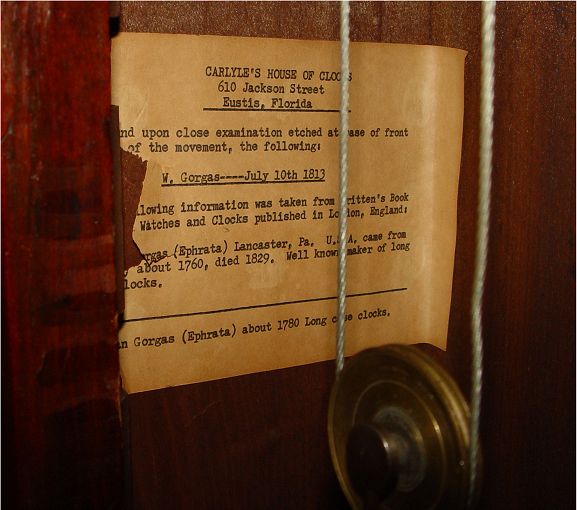 CARLYLE'S HOUSE OF CLOCKS
610 Jackson Street
Eustis, Florida
nd upon close examination etched at base of front
of the movement, the following:
W. Gorgas----July 10th 1813
lowing information was taken from Britten's Book
Watches and Clocks published in London, England:
orgas (Ephrata) Lancaster, Pa. U.S.A. came from
about 1760, died 1829. Well known maker of long
locks.
n Gorgas (Ephrata) about 1780 Long case clocks.